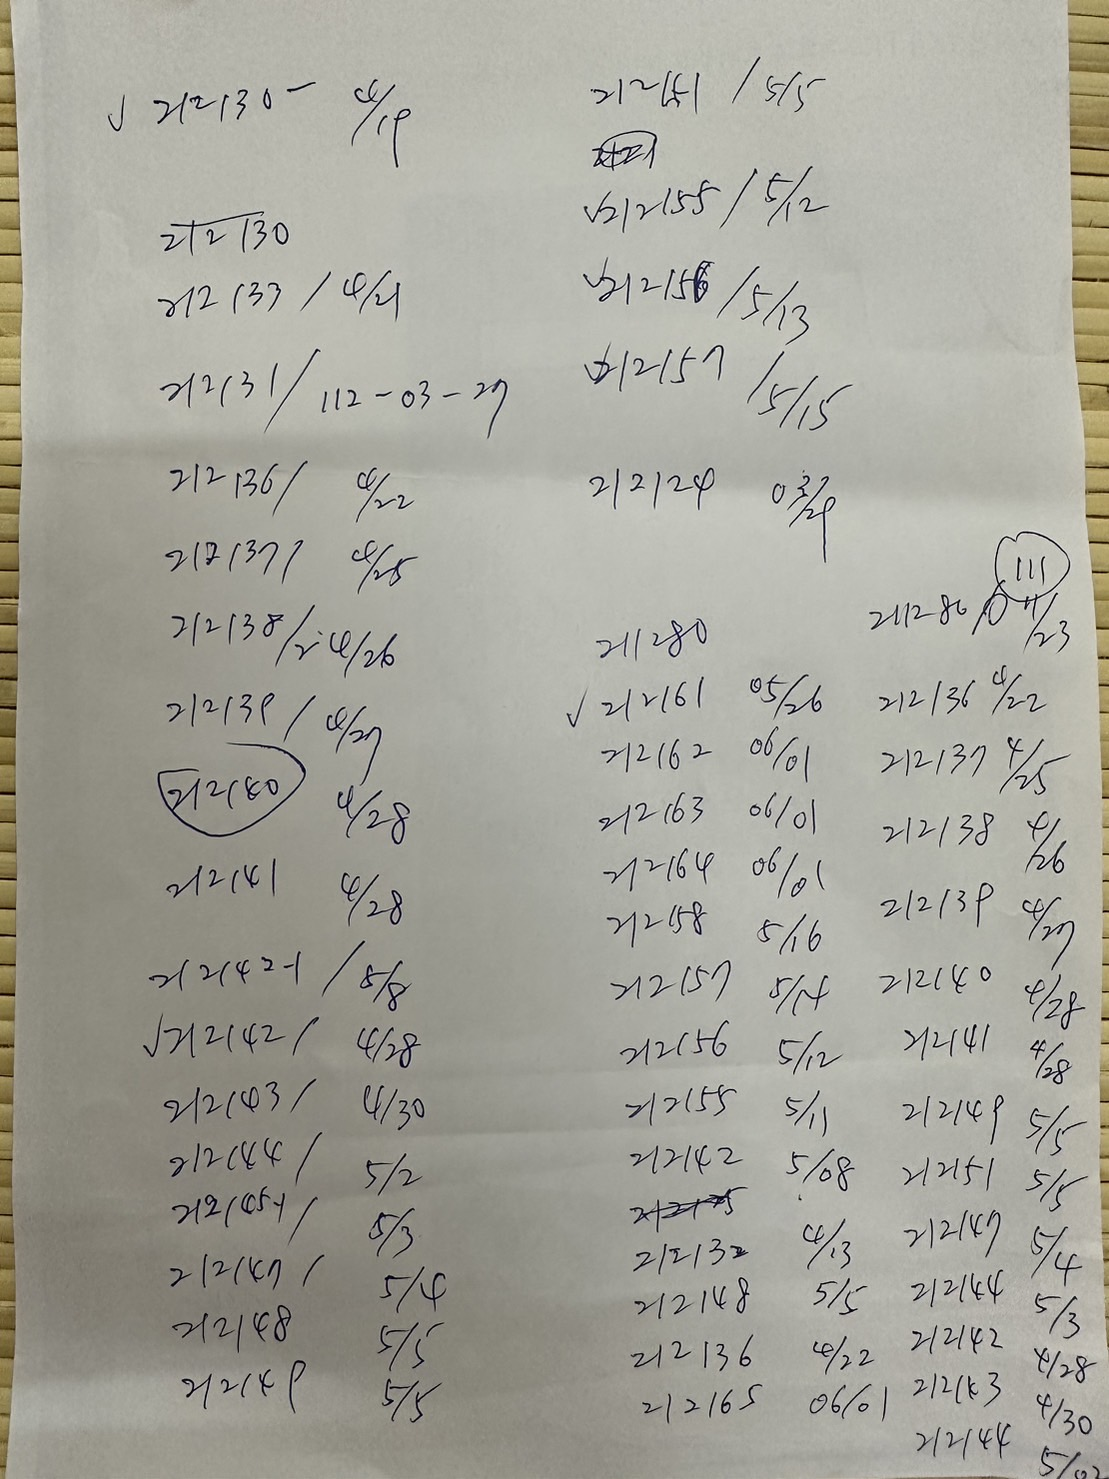 ✓ 212130- 4/19
212130
212133 / 4/21
212131 / 112-03-27
212136 / 4/22
212137 / 4/25
212138 / 2-4/26
212139 / 4/27
212140 4/28
212141 4/28
212142-1 / 5/8
✓ 212142 / 4/28
212143 / 4/30
212144 / 5/2
212145-1 / 5/3
212147 / 5/4
212148 5/5
212149 5/5
212151 / 5/5
✓ 212155 / 5/12
✓ 212156 / 5/13
✓ 212157 / 5/15
212124 03/29
211280
✓ 212161 05/26
212162 06/01
212163 06/01
212164 06/01
212158 5/16
212157 5/14
212156 5/12
212155 5/11
212142 5/08
212132 4/13
212148 5/5
212136 4/22
212165 06/01
111
211280 11/23
212136 4/22
212137 4/25
212138 4/26
212139 4/27
212140 4/28
212141 4/28
212149 5/5
212151 5/5
212147 5/4
212144 5/3
212142 4/28
212143 4/30
212144